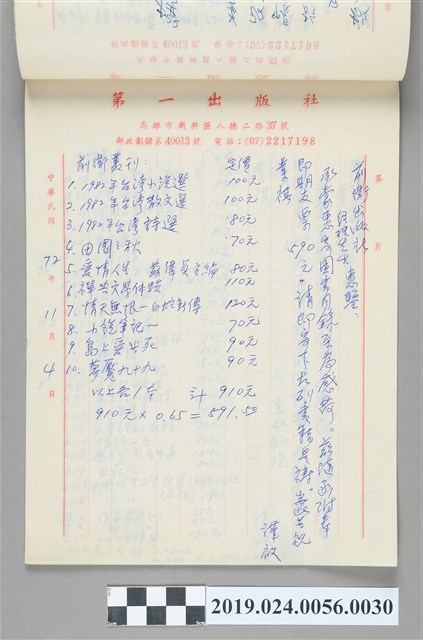 第一出版社
高雄市新興區八德二路37號
郵政劃儲第40013號 電話：(07)2217198
第 頁
前衛出版社
經理先生 惠鑒：
承蒙惠寄圖書目錄至為感荷。茲隨函附奉
即期支票590元。請即寄下右列書籍是禱。
業祺
謹啟
前衛叢刊： 定價
1. 1982年台灣小說選 100元
2. 1982年台灣散文選 100元
3. 1982年台灣詩選 80元
4. 田園之秋 70元
5. 愛情人生 80元
6. 禪與文學体驗 110元
7. 情天無恨—白蛇新傳 120元
8. 小說筆記— 70元
9. 島上愛與死 90元
10. 夢魘九十九 90元
以上各1本 計 910元
910元×0.65=591.50
中華民國72年11月4日
2019.024.0056.0030